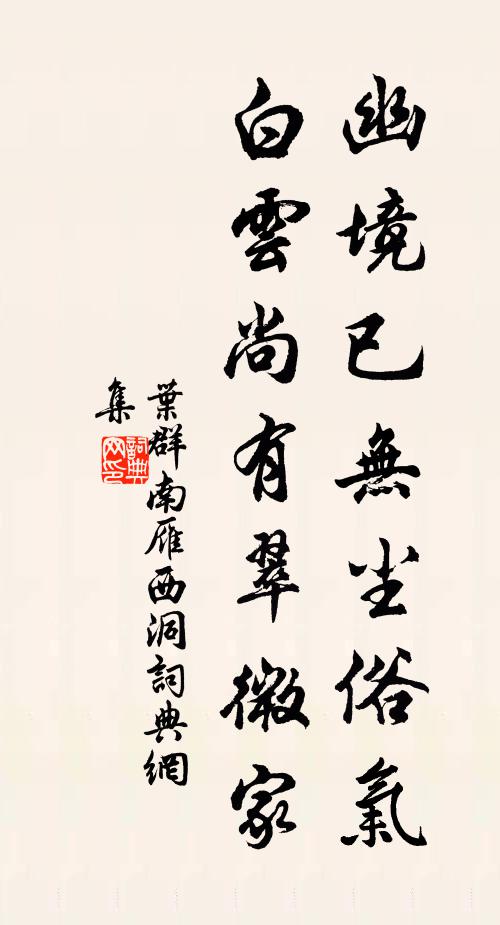 幽境已無尘俗氣
白雲尚有翠微家
葉群南雁西洞詞典網
集
詞典
网印